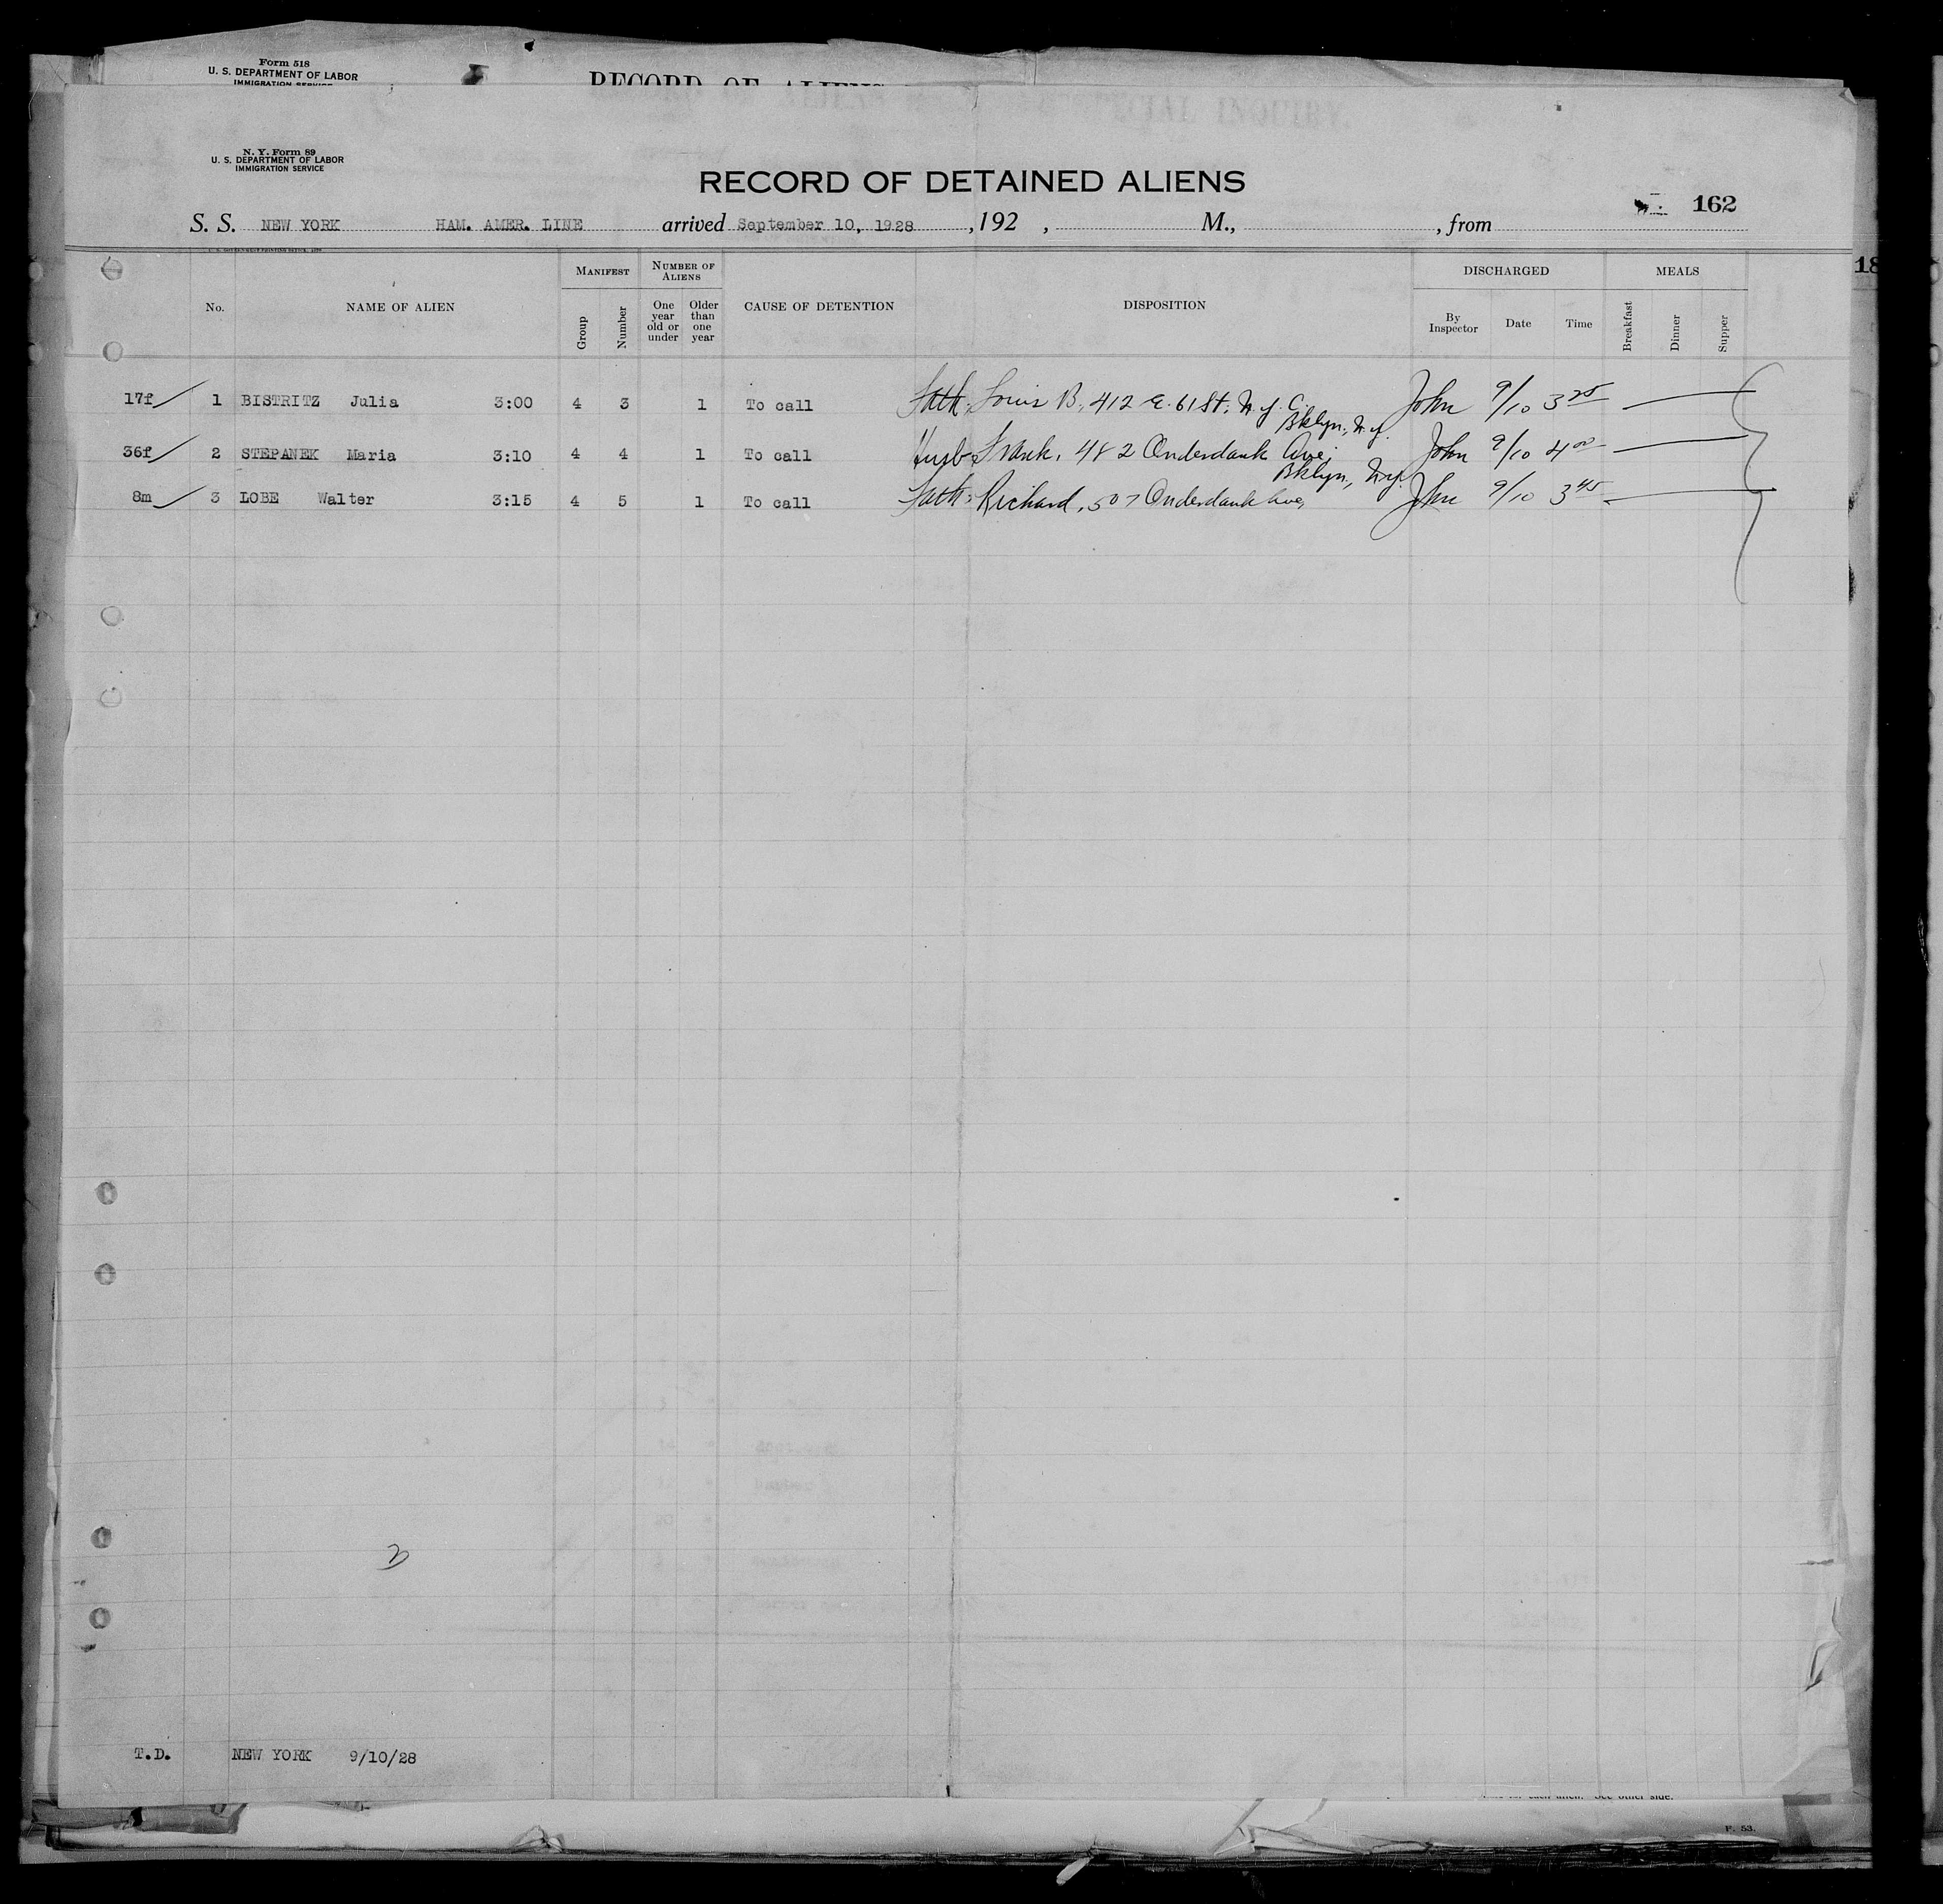 Form 518
U. S. DEPARTMENT OF LABOR
IMMIGRATION SERVICE
RECORD OF ALIENS
N. Y. Form 89
U. S. DEPARTMENT OF LABOR
IMMIGRATION SERVICE
RECORD OF DETAINED ALIENS
162
S. S. NEW YORK HAM. AMER. LINE arrived September 10, 1928 , 192 , M., , from
18
No. NAME OF ALIEN MANIFEST Group Number NUMBER OF ALIENS One year old or under Older than one year CAUSE OF DETENTION DISPOSITION DISCHARGED By Inspector Date Time MEALS Breakfast Dinner Supper
17f 1 BISTRITZ Julia 3:00 4 3 1 To call Fath. Louis B, 412 E. 61 St, N. Y. C. John 9/10 3 25
36f 2 STEPANEK Maria 3:10 4 4 1 To call Husb Frank, 482 Onderdank Ave, Bklyn, N.Y. John 9/10 4 00
8m 3 LOBE Walter 3:15 4 5 1 To call Fath: Richard, 507 Onderdank Ave, Bklyn, N.Y. John 9/10 3 45
T.D. NEW YORK 9/10/28
See other side.
F. 53.